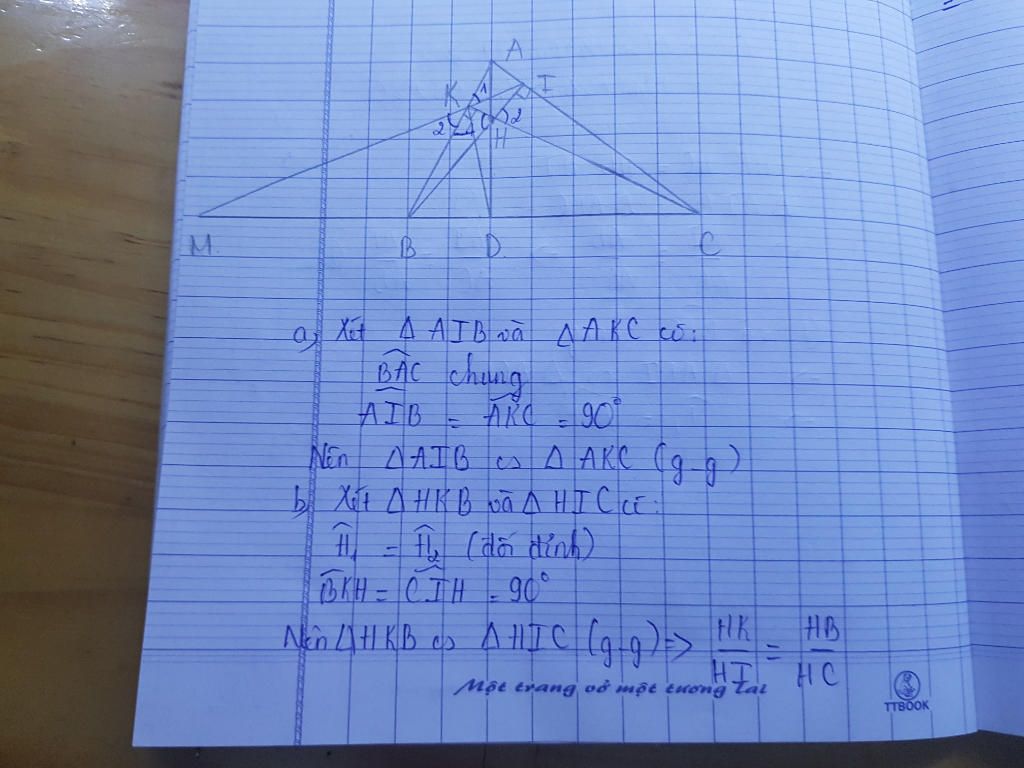 A
K 1 I
2 1 2
H
M B D C
a) Xét Δ AIB và Δ AKC có:
BAC chung
AIB = AKC = 90°
Nên Δ AIB ∽ Δ AKC (g-g)
b) Xét Δ HKB và Δ HIC có:
H₁ = H₂ (đối đỉnh)
BKH = CIH = 90°
Nên Δ HKB ∽ Δ HIC (g-g) => HK/HI = HB/HC
Một trang vở một tương lai
TTBOOK